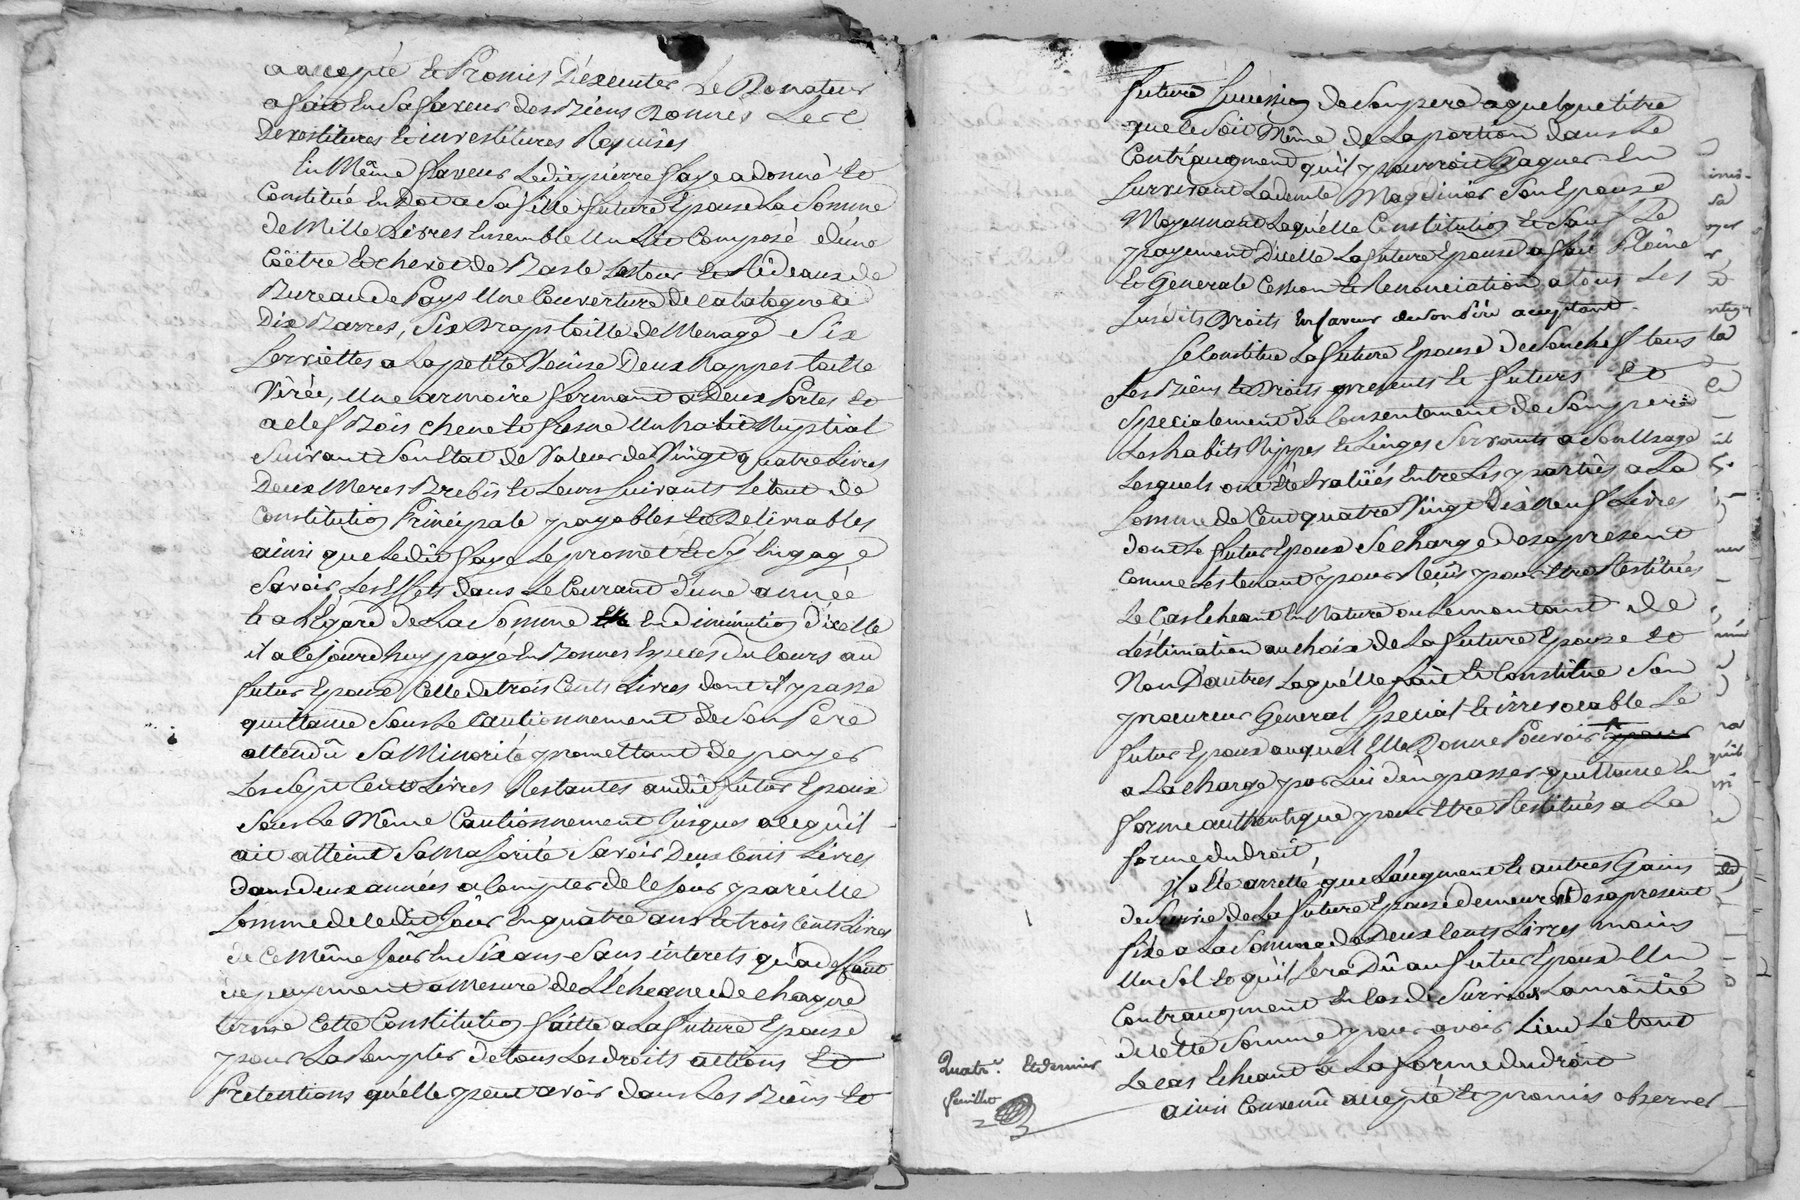 a accepté et Promis D'éxecuter Le Donateur
a fait En Sa faveur des Biens Donnés Les
Devestitures et investitures Requises
En Même faveur Ledit pierre faye a donné Et
Constitué En Dot a Sa fille future Epouse La Somme
de Mille Livres Ensemble Un Lit Composé d'une
Coêtre Et chevet de Basle Latour Et Rideaux de
Bureau de Pays Une Couverture de Catalogne a
Dix Barres, Six Draps toille de Menage Six
Serviettes a La petite Venise Deux Nappes toille
Virée, Une armoire fermant a Deux Portes Et
a clef Bois chene Et fresne Un habit Nuptial
Suivant Son Etat de Valeur de Vingt quatre Livres
Deux Meres Brebis Et Leurs Suivants Le tout de
Constitution Principale payables Et Delivrables
ainsi que Ledit faye Le promet Et S'y Engage
Savoir Les Effets dans Le Courant d'une année
Et a L'Egard de La Somme En diminution d'icelle
il a Cejourd'huy payé En Bonnes Especes du Cours au
futur Epoux Celle de trois Cents Livres dont il passe
quittance Sous Le Cautionnement de Son Pere
attendû Sa Minorité promettant de payer
Les Sept Cents Livres Restantes audit futur Epoux
Sous Le Même Cautionnement Jusques a ce qu'il
ait atteint Sa Majorité Savoir Deux Cents Livres
Dans deux années a Compter de Ce Jour pareille
Somme de Ce dit Jour En quatre ans Et trois Cents Livres
de Ce Même Jour En Six ans Sans interets qu'a deffaut
de payement a Mesure de L'Echeance de chaque
terme Cette Constitution faitte a La future Epouse
pour La Compter de tous Les droits actions Et
Pretentions qu'elle peut avoir dans Les Biens Et
future Succession de Son pere a quelque titre
que Ce Soit Même de La portion dans Le
Contraugment qu'il pourroit Gagner En
Survivant Ladite Magdinier Son Epouse
Moyennant Laquelle Constitution Et Sauf Le
payement D'icelle La future Epouse a fait Pleine
Et Generale Cession Et Renonciation a tous Les
Susdits Droits En faveur de Son Pere acceptant.
Se Constitue La future Epouse de Son chef tous
Les Biens Et Droits presents Et futurs Et
Specialement Du Consentement de Son pere
Les habits Nippes Et Linges Servants a Son Usage
Lesquels ont Eté Evalüés Entre Les parties a La
Somme de Cent quatre Vingt Dix Neuf Livres
dont Le futur Epoux Se charge Des a present
Comme Les tenant pour Reçûs pour Etre Restitués
Le Cas Echeant En Nature ou Le montant de
L'estimation au choix de La future Epouse Et
Non D'autres Laquelle fait Et Constitue Son
procureur General Special Et irrevocable Le
futur Epoux auquel Elle Donne Pouvoir
a La charge par Lui d'en passer quittance En
forme authentique pour Etre Restitués a La
forme du droit
il a Eté arretté que L'augment Et autres Gains
de Survie de La future Epouse demeurent Des a present
fixé a La Somme de Deux Cents Livres moins
Un Sol Et qu'il Sera Dû au futur Epoux Un
Contraugment En Cas de Survie de La moitié
de Cette Somme pour avoir Lieu Le tout
Le cas Echeant a La forme du droit
ainsi Convenû accepté Et promis observer
Quatre. Et dernier
feuille